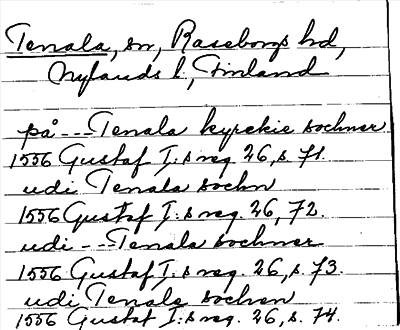 Tenala, sn, Raseborgs hd,
Nylands l., Finland
på --- Tenala kyrckie sochner
1556 Gustaf I:s reg. 26, s. 71.
udi Tenala sochn
1556 Gustaf I:s reg. 26, 72.
udi -- Tenala sochner
1556 Gustaf I:s reg. 26, s. 73.
udi Tenale sochen
1556 Gustaf I:s reg. 26, s. 74.